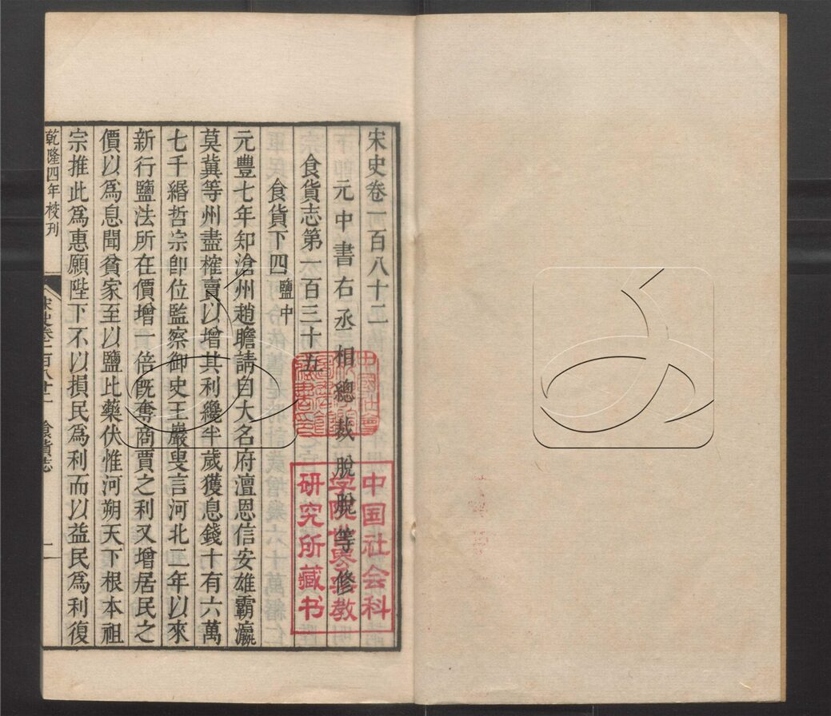 宋史卷一百八十二
元中書右丞相總裁脫脫等修
食貨志第一百三十五
食貨下四鹽中
元豐七年知滄州趙瞻請自大名府澶恩信安雄霸瀛
莫冀等州盡榷賣以增其利纔半歲獲息錢十有六萬
七千緡哲宗卽位監察御史王巖叟言河北二年以來
新行鹽法所在價增一倍旣奪商賈之利又增居民之
價以爲息聞貧家至以鹽比藥伏惟河朔天下根本祖
宗推此爲惠願陛下不以損民爲利而以益民爲利復
乾隆四年校刊
宋史卷一百八十二 食貨志
一
中国社会科
学院世界宗教
研究所藏书